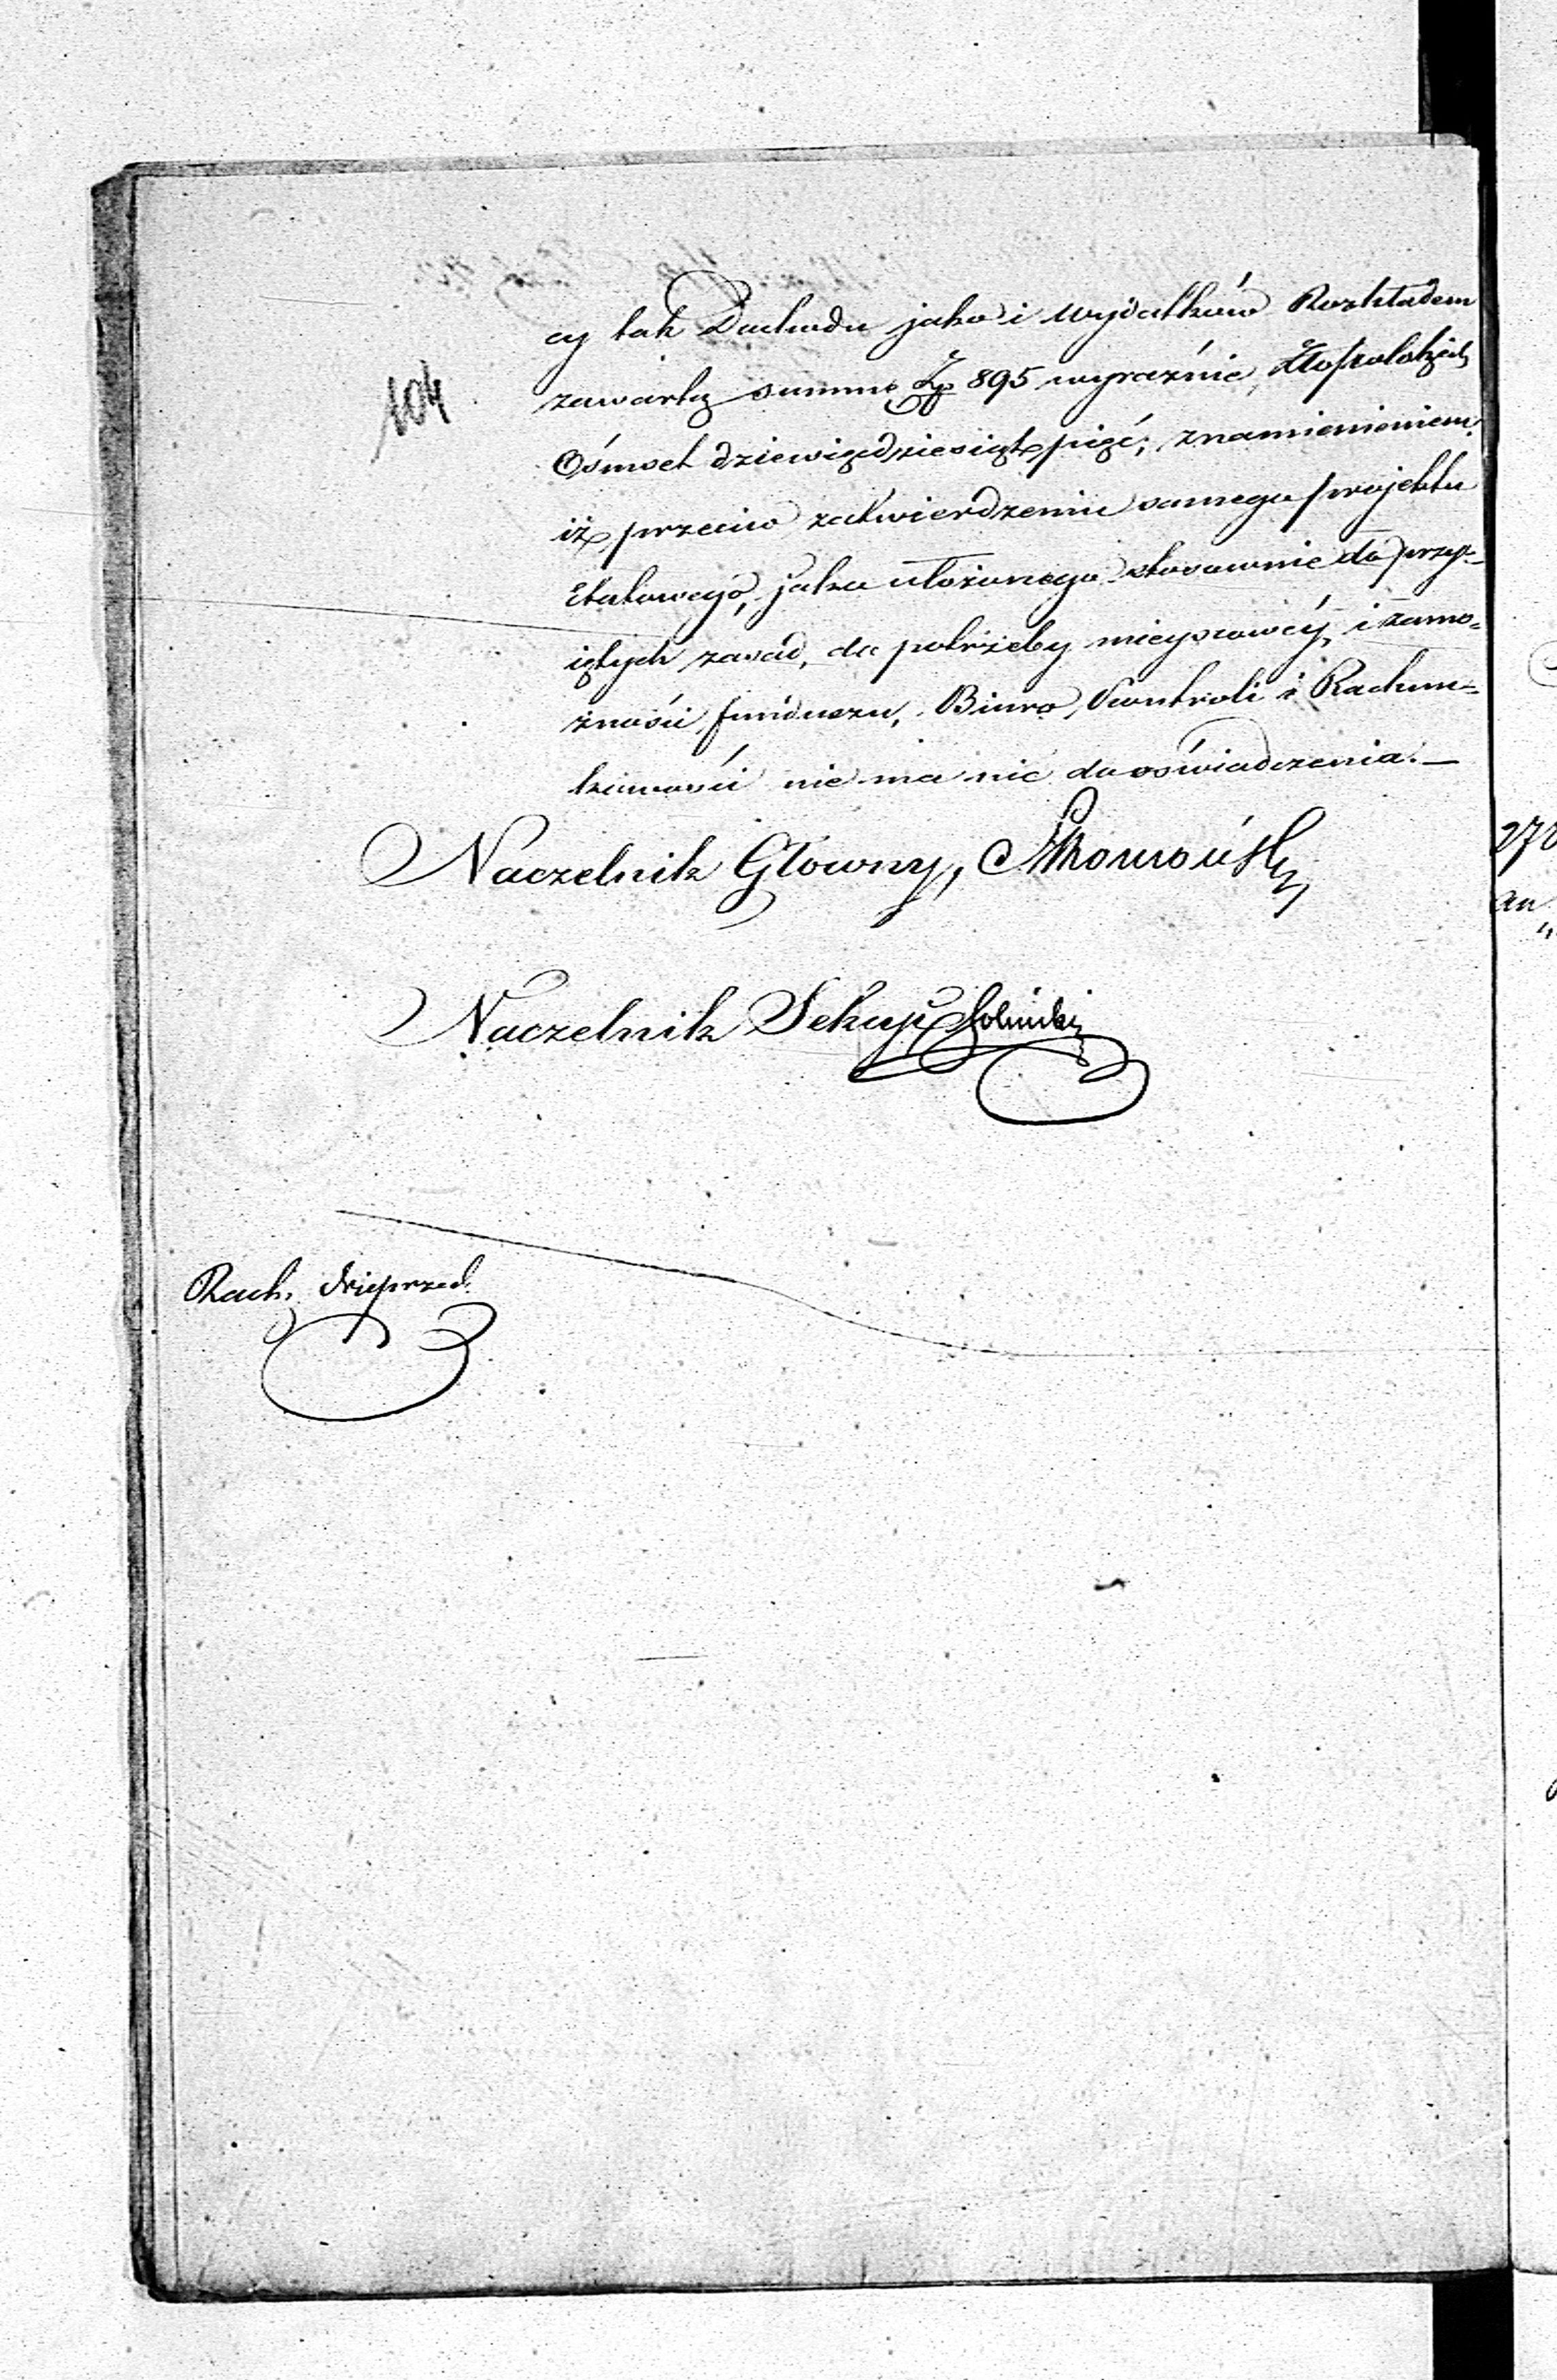 104
cy tak Dochodu jako i Wydatków Rozkładem
zawartą summę Zp 895 wyraźnie, Złopolskich
Ośmset dziewięćdziesiąt pięć; znamienieniem,
iż przeciw zatwierdzeniu samego projektu
Etatowego, jako ułożonego stosownie do przy-
iętych zasad, do potrzeby mieyscowéy, i zamo-
żności funduszu, Biuro Kontroli i Rachun-
kowości nie ma nic do oświadczenia.—
Naczelnik Główny,
Naczelnik Sekcyi
Rach.